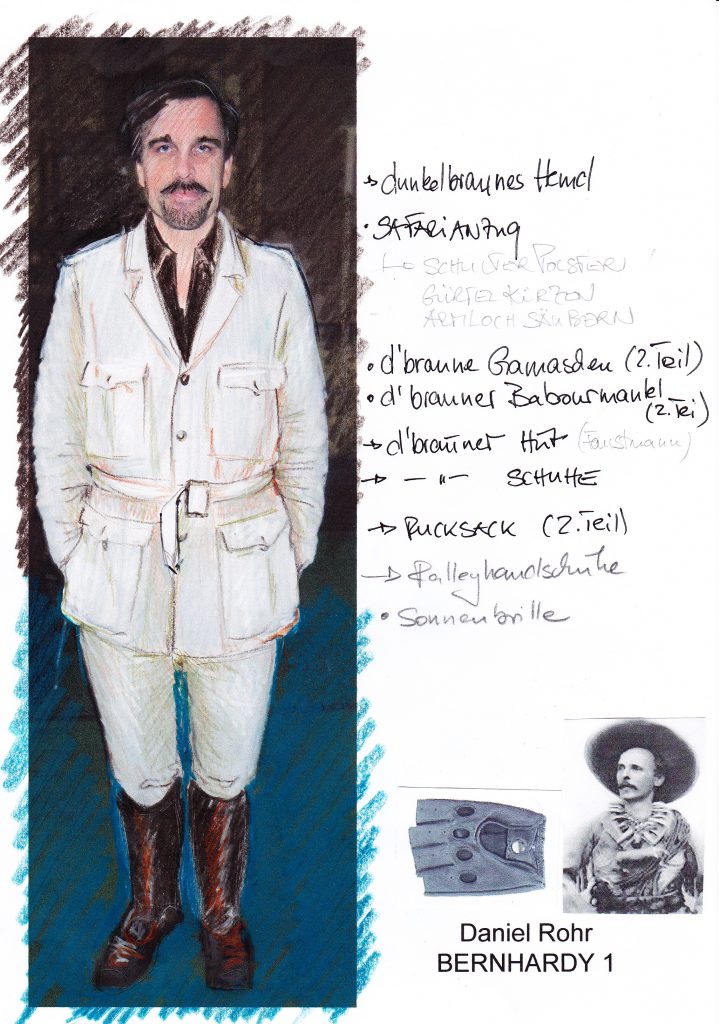 → dunkelbraunes Hemd
• SAFARIANZUG
↳ SCHULTERPOLSTER
GÜRTEL KÜRZEN
ARMLOCH SÄUBERN
• d'braune Gamaschen (2. Teil)
• d'brauner (2. Tei)
→ d'brauner Hut (Faustmann)
→ — " — SCHUHE
→ RUCKSACK (2. Teil)
→ Ralleyhandschuhe
• Sonnenbrille
Daniel Rohr
BERNHARDY 1